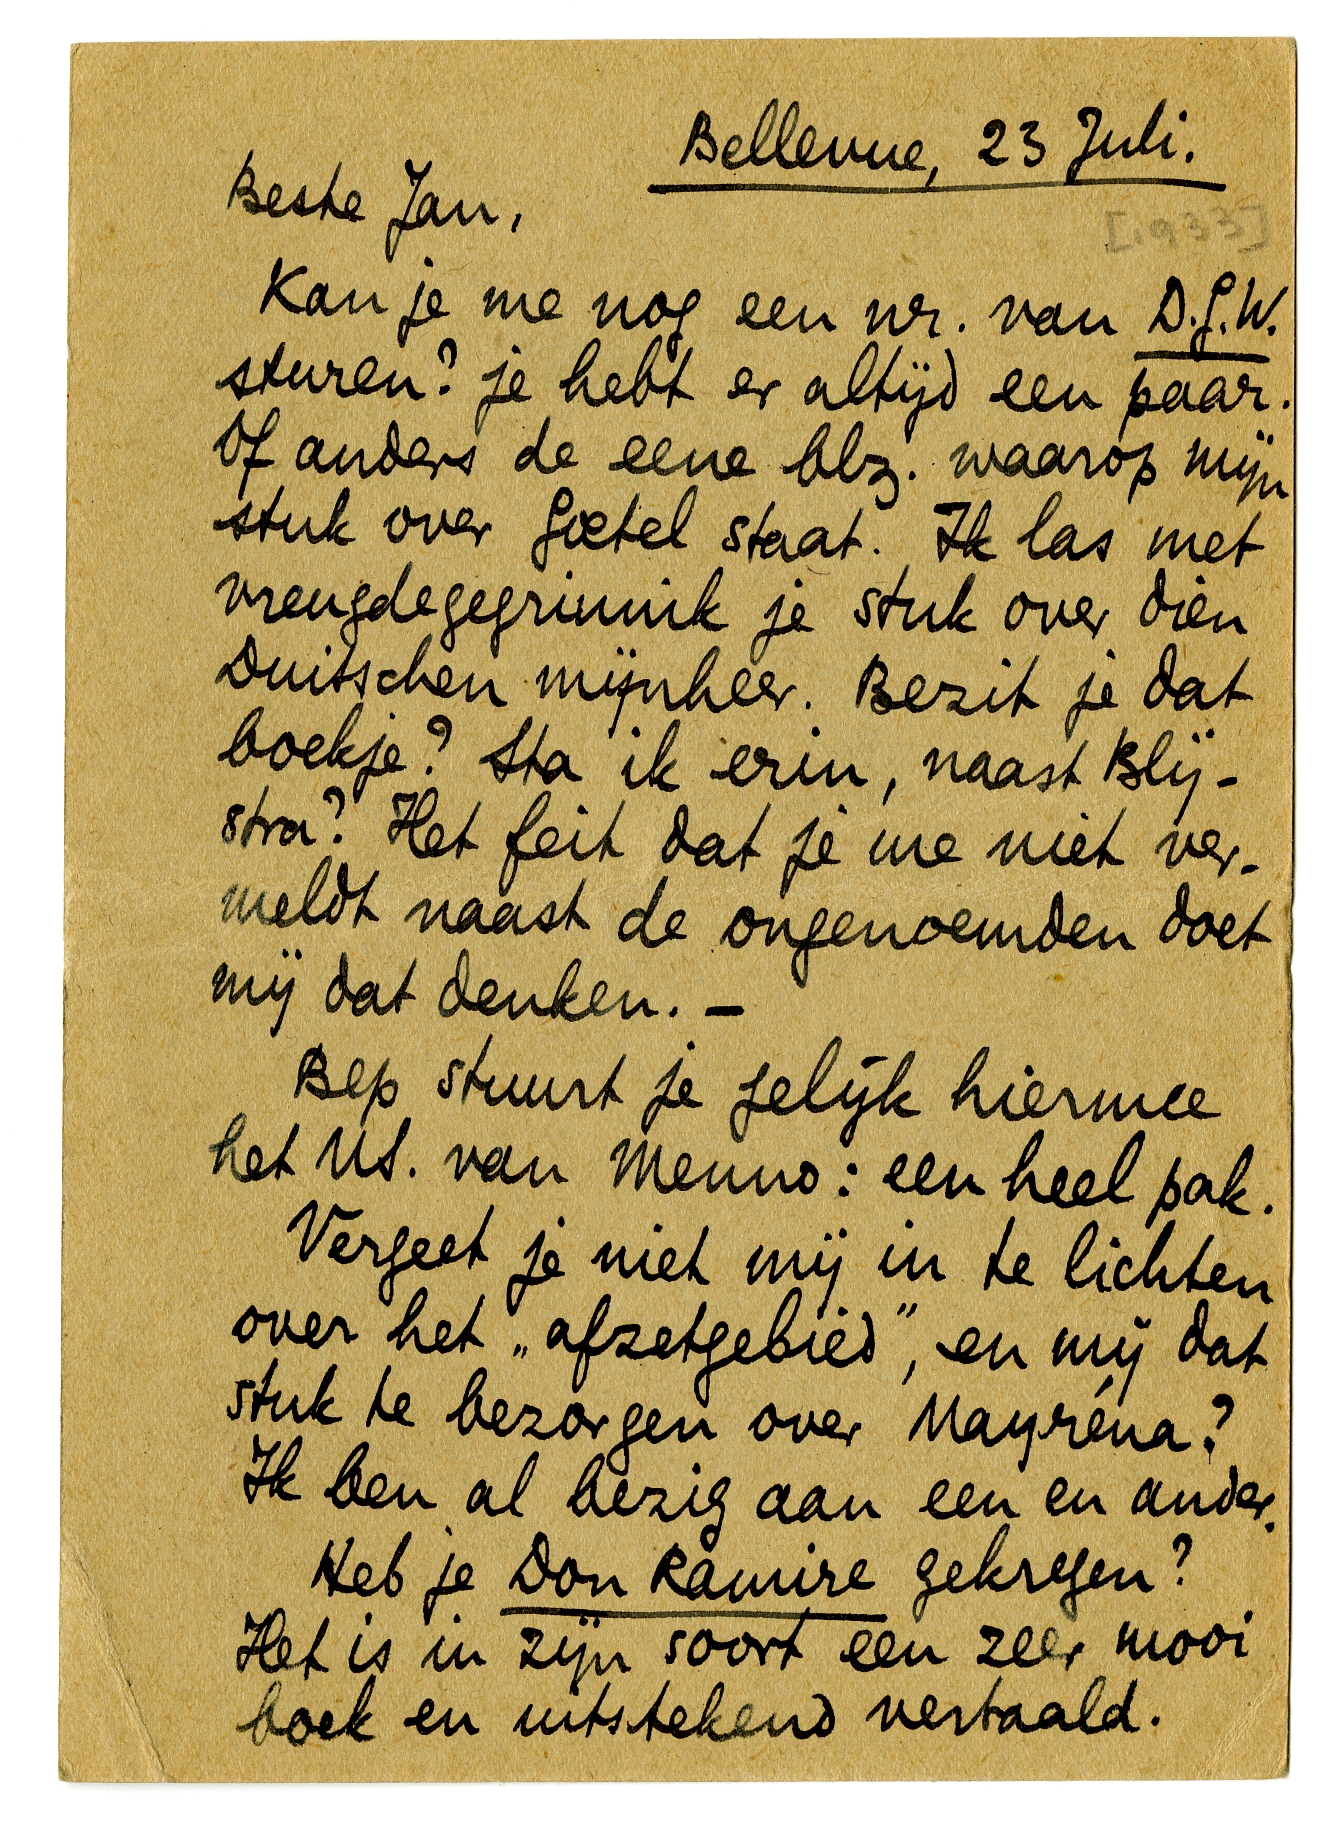 Bellevue, 23 Juli.
Beste Jan,
[1933]
Kan je me nog een nr. van D.G.W.
sturen? je hebt er altijd een paar.
Of anders de eene blz. waarop mijn
stuk over Goetel staat. Ik las met
vreugdegegrinnik je stuk over dien
Duitschen mijnheer. Bezit je dat
boekje? Sta ik erin, naast Blij-
stra? Het feit dat je me niet ver-
meldt naast de ongenoemden doet
mij dat denken. —
Bep stuurt je gelijk hiermee
het MS. van Menno: een heel pak.
Vergeet je niet mij in te lichten
over het „afzetgebied”, en mij dat
stuk te bezorgen over Mayréna?
Ik ben al bezig aan een en ander.
Heb je Don Ramire gekregen?
Het is in zijn soort een zeer mooi
boek en uitstekend vertaald.